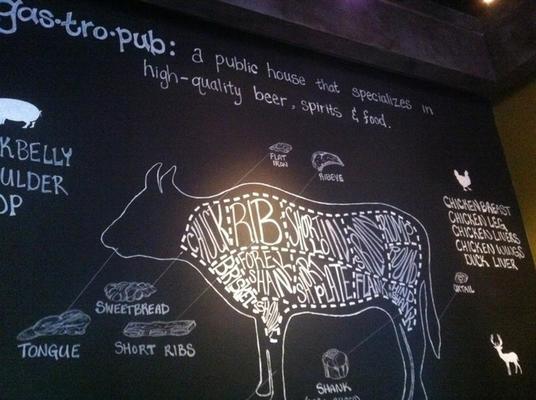 gas·tro·pub:
a public house that specializes in
high-quality beer, spirits & food.
KBELLY
ULDER
OP
FLAT
IRON
RIBEYE
CHUCK
RIB
SHORTLOIN
RUMP
BRISKET
FORE
SHANK
PLATE
FLANK
CHICKEN BREAST
CHICKEN LEG
CHICKEN LIVERS
CHICKEN WINGS
DUCK LIVER
OXTAIL
SWEETBREAD
TONGUE
SHORT RIBS
SHANK